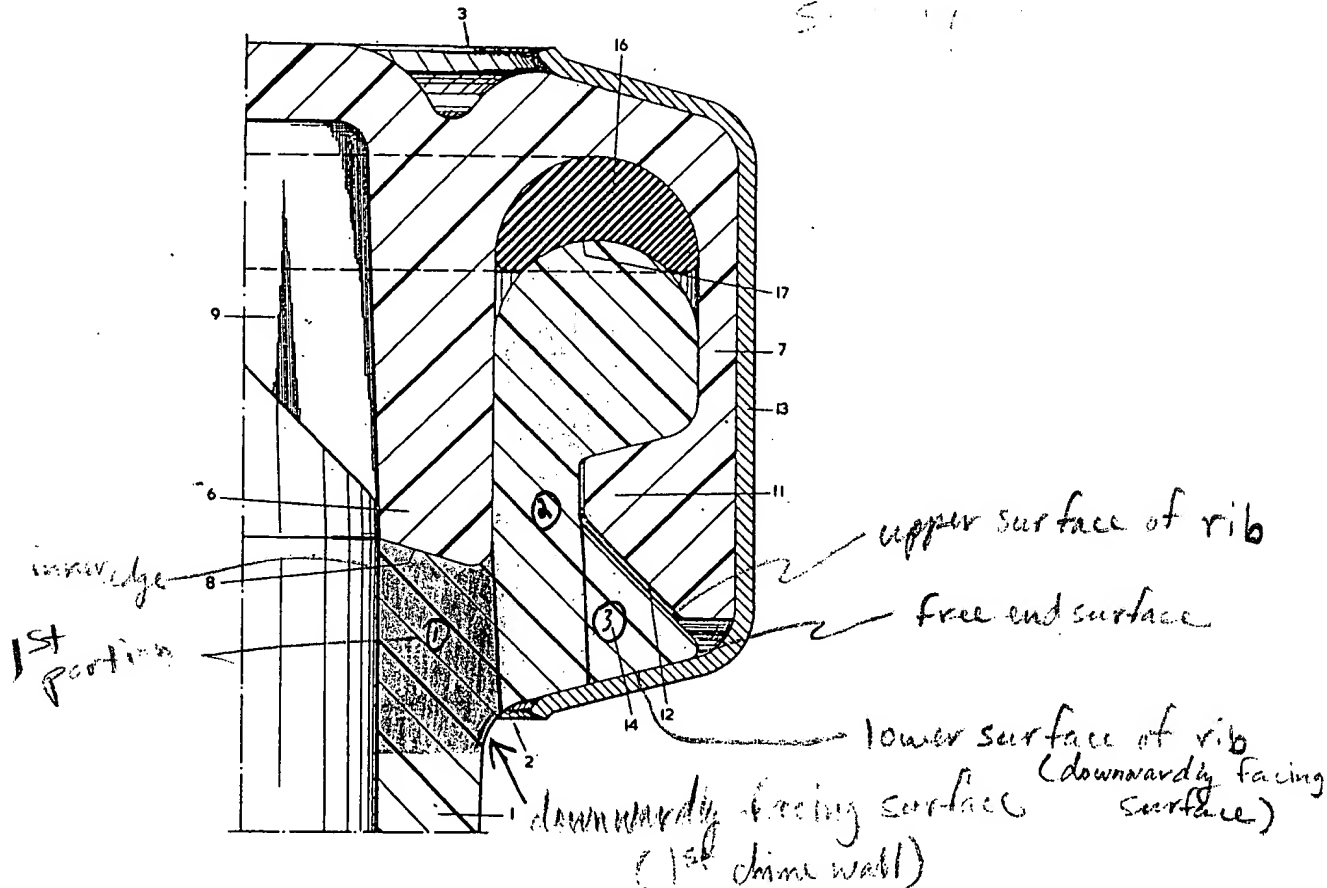 3
16
17
9
7
13
6
11
②
upper surface of rib
inner edge
8
free end surface
③
①
1st
portion
12
14
lower surface of rib
(downwardly facing
surface)
2
1
downwardly facing surface
(1st chime wall)